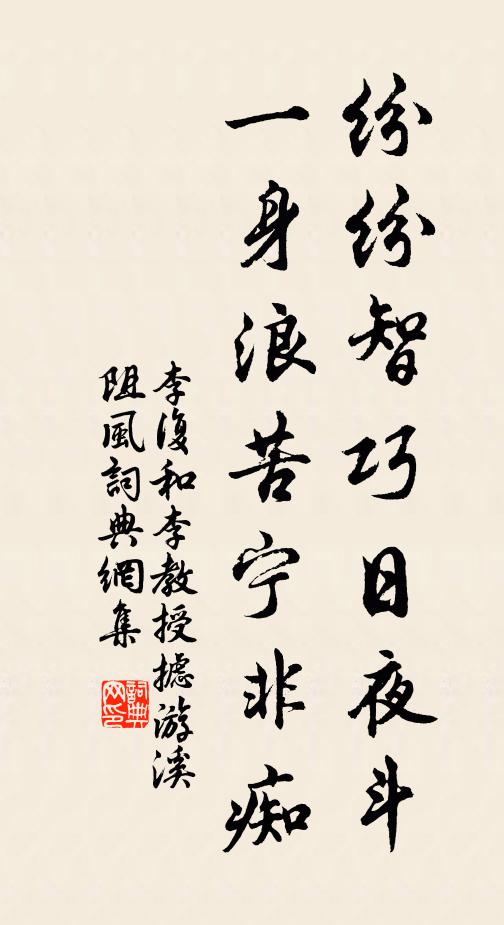 纷纷智巧日夜斗
一身浪苦宁非痴
李復和李教授摅游溪
阻風詞典網集
詞典网印